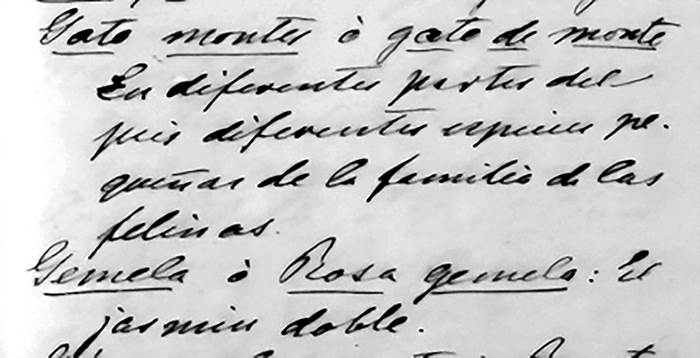 Gato montes ò gato de monte
En diferentes partes del
pais diferentes especies pe-
queñas de la familia de las
felinas.
Gemela ò Rosa gemela: El
jasmin doble.